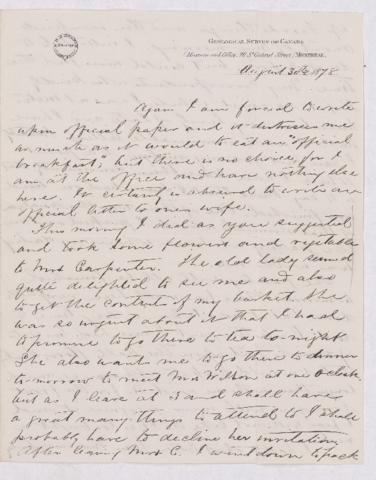 GEOLOGICAL SURVEY OF CANADA
Museum and Office, 76 St Gabriel Street, MONTREAL,
August 30th 1878
Again I am forced to write
upon official paper and it distresses me
as much as it would to eat an "official
breakfast", but there is no choice, for I
am at the office and have nothing else
here. It certainly is absurd to write an
official letter to ones wife.
This morning I did as you suggested
and took some flowers and vegetables
to Mrs Carpenter. The old lady seemed
quite delighted to see me and also
to get the contents of my basket. She
was so urgent about it that I had
to promise to go there to tea to-night
She also wants me to go there to dinner
to-morrow to meet Mrs Wilson at one o'clock
but as I leave at 3 and shall have
a great many things to attend to I shall
probably have to decline her invitation.
After leaving Mrs C. I went down to pack